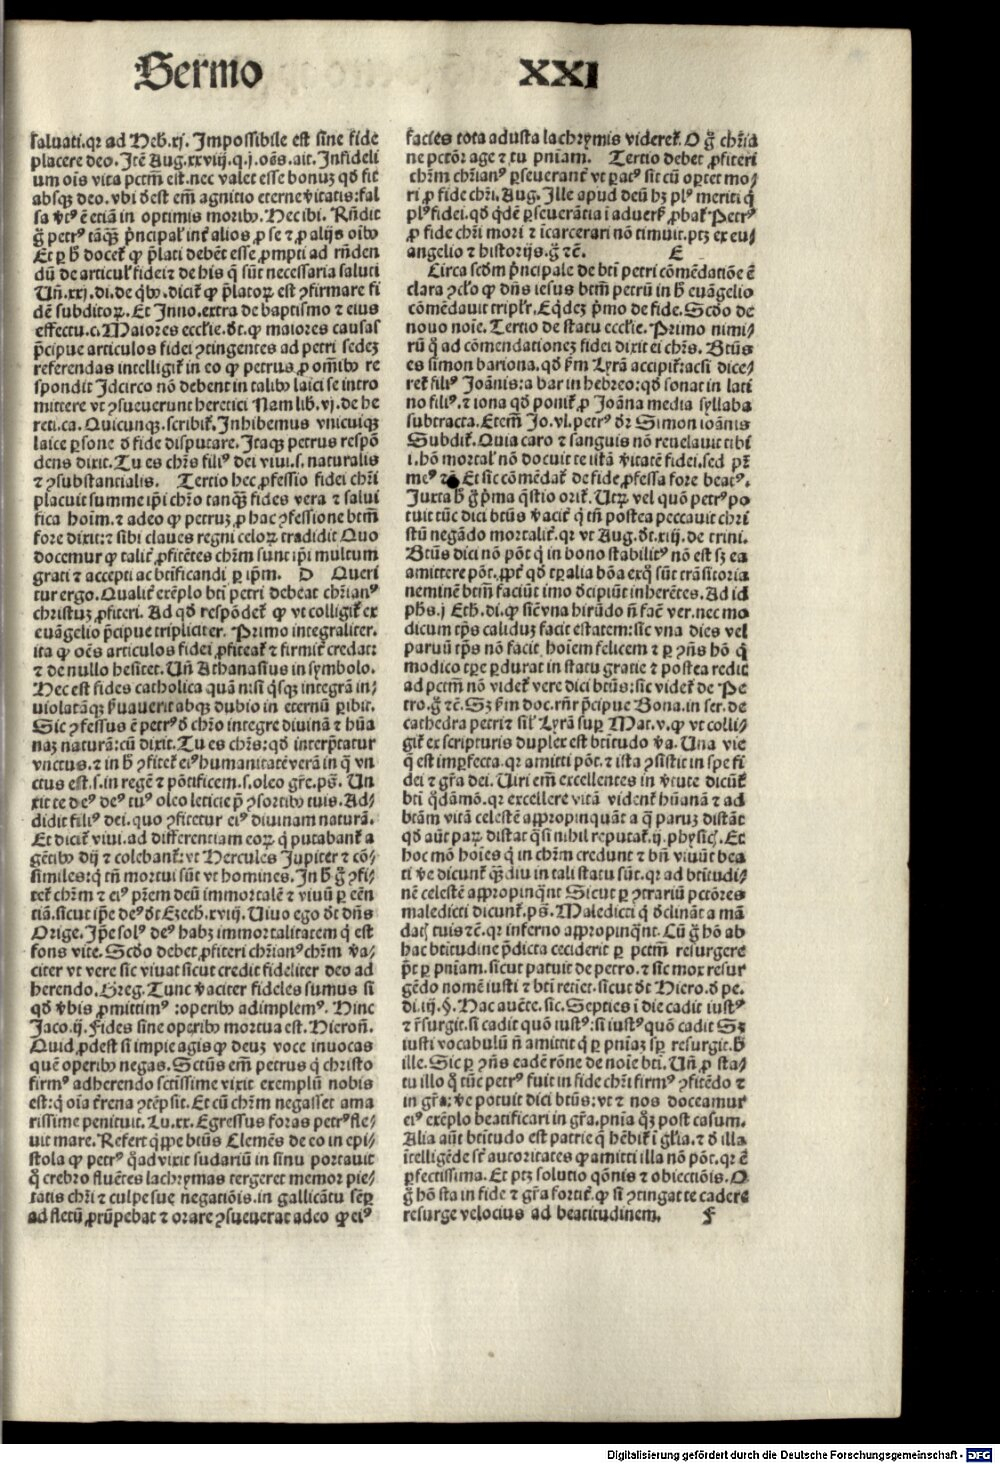 Sermo XXI
saluati.qꝛ ad Heb.xj. Impossibile est sine fide
placere deo. Itē Aug.xxviij.q.j.oēs.ait. Infideli
um oīs vita pctm̄ est.nec valet esse bonuꝫ qd̄ fit
absqꝫ deo. vbi d̓est em̄ agnitio eterne v̓itatis:fal
sa v̓tꝰ ē etiā in optimis moribꝰ. Hec ibi. Rn̄dit
g̊ petrꝰ tāqꝫ p̓ncipal' int̓ alios ꝓ se ⁊ ꝓ alijs oībꝰ
Et ꝑ h̓ docet̉ ꝙ p̄lati debēt esse ꝓmpti ad rn̄den
dū de articul' fidei ⁊ de his q̄ sūt necessaria saluti
Un̄.xxj.di.de qbꝰ.dicit̉ ꝙ p̄latoꝝ est ꝯfirmare fi
dē subditoꝝ. Et Inno.extra de baptismo ⁊ eius
effectu.c. Maiores ecclīe.d̓t.ꝙ maiores causas
p̄cipue articulos fidei ꝯtingentes ad petri sedeꝫ
referendas intelligit̉ in eo ꝙ petrus ꝓ om̄ibꝰ re
spondit Idcirco nō debent in talibꝰ laici se intro
mittere vt ꝯsueuerunt heretici Nam lib.vj.de he
reti.ca. Quicunqꝫ.scribit̉. Inhibemus vnicuiqꝫ
laice ꝑsone d̓ fide disputare. Itaqꝫ petrus respō
dens dixit. Tu es chr̄s filiꝰ dei viui.s.naturalis
⁊ ꝯsubstantialis. Tertio hec ꝓfessio fidei chr̄i
placuit summe ip̄i chr̄o tanqꝫ fides vera ⁊ salui
fica hoīm.⁊ adeo ꝙ petruꝫ ꝓ hac ꝯfessione btm̄
fore dixit:⁊ sibi claues regni celoꝝ tradidit Quo
docemur ꝙ talit̓ ꝓfitētes chr̄m sunt ip̄i multum
grati ⁊ accepti ac btificandi ꝑ ip̄m. D Queri
tur ergo. Qualit̓ exēplo bt̄i petri debeat chr̄ianꝰ
christuꝫ ꝓfiteri. Ad qd̄ respōdet̉ ꝙ vt colligit̉ ex
euāgelio p̄cipue tripliciter. Primo integraliter.
ita ꝙ oēs articulos fidei ꝓfiteat̉ ⁊ firmit̓ credat:
⁊ de nullo hesitet. Un̄ Athanasius in symbolo.
Hec est fides catholica quā nisi q̓sqꝫ integrā in/
violatāqꝫ ẜuauerit absqꝫ dubio in eternū ꝑibit.
Sic ꝯfessus ē petrꝰ d̓ chr̄o integre diuinā ⁊ hūa
naꝫ naturā:cū dixit. Tu es chr̄s:qd̄ interp̄tatur
vnctus.⁊ in h̓ ꝯfitet̉ eiꝰ humanitatē verā in q̄ vn
ctus est.s.in regē ⁊ pōtificem.s.oleo gr̄e.ps̄. Un
xit te deꝰ deꝰ tuꝰ oleo leticie p̄ ꝯsortibꝰ tuis. Ad/
didit filiꝰ dei.quo ꝯfitetur eiꝰ diuinam naturā.
Et dicit̉ viui.ad differentiam eoꝝ q̇ putabant̉ a
gētibꝰ dij ⁊ colebant̉:vt Hercules Jupiter ⁊ cō/
similes:q̇ tn̄ mortui sūt vt homines. In h̓ g̊ ꝯfi/
tet̉ chr̄m ⁊ eiꝰ pr̄em deū immortalē ⁊ viuū ꝑ eēn
tiā.sicut ip̄e deꝰ d̓t Ezech.xviij. Uiuo ego d̓t dn̄s
Orige. Ip̄e solꝰ deꝰ habꝫ immortalitatem q̇ est
fons vite. Scd̓o debet ꝓfiteri chr̄ianꝰ chr̄m v̓a/
citer vt vere sic viuat sicut credit fideliter deo ad
herendo. Greg. Tunc v̓aciter fideles sumus si
qd̄ v̓bis ꝓmittimꝰ:operibꝰ adimplemꝰ. Hinc
Jaco.ij. Fides sine operibꝰ mortua est. Hieron̄.
Quid ꝓdest si impie agis ꝙ deuꝫ voce inuocas
quē operibꝰ negas. Sctūs em̄ petrus q̇ christo
firmꝰ adherendo sctissime vixit exemplū nobis
est:q̇ oīa t̓rena ꝯtēpsit. Et cū chr̄m negasset ama
rissime penituit. Lu.xx. Egressus foras petrꝰ fle/
uit mare. Refert q̇ppe btūs Clemēs de eo in epi/
stola ꝙ petrꝰ q̄ad vixit sudariū in sinu portauit
q̊ crebro fluētes lachrymas tergeret memor pie/
tatis chr̄i ⁊ culpe sue negatiōis.in gallicātu sēꝑ
ad fletū ꝓrūpebat ⁊ orare ꝯsueuerat adeo ꝙ eiꝰ
facies tota adusta lachrymis videret̉. O g̊ chr̄ia
ne pctōr age ⁊ tu pn̄iam. Tertio debet ꝓfiteri
chr̄m chr̄ianꝰ ꝑseuerant̓ vt ꝑatꝰ sit cū oportet mo/
ri ꝓ fide chr̄i. Aug. Ille apud deū hꝫ plꝰ meriti q̇
plꝰ fidei.qd̄ q̇dē ꝑseuerātia ī aduers̓ ꝓbat̉ Petrꝰ
ꝓ fide chr̄i mori ⁊ īcarcerari nō timuit.ptꝫ ex eu/
angelio ⁊ historijs.g̊ ⁊c̄. E
Circa scd̓m p̓ncipale de bt̄i petri cōmēdatiōe ē
clara ꝯclo̊ ꝙ dn̄s iesus btm̄ petrū in h̓ euāgelio
cōmēdauit triplr̓. Eq̇deꝫ p̓mo de fide. Scd̓o de
nouo noīe. Tertio de statu ecclīe. Primo nimi/
rū q̇ ad cōmendationeꝫ fidei dixit ei chr̄s. Btūs
es simon bariona.qd̄ ẜm Lyrā accipit̉:acsi dice/
ret̉ filiꝰ Joānis:a bar in hebreo:qd̄ sonat in lati
no filiꝰ.⁊ iona qd̄ ponit̉ ꝓ Joāna media syllaba
subtracta. Etem̄ Jo.vl.petrꝰ d̓r Simon ioānis
Subdit̉. Quia caro ⁊ sanguis nō reuelauit tibi
i.hō mortal' nō docuit te istā v̓itatē fidei.sed pr̄
meꝰ ⁊c̄ Et sic cōmēdat̉ de fide ꝓfessa fore beatꝰ.
Juxta h̓ g̊ p̓ma q̄stio orit̉. Utꝝ vel quō petrꝰ po
tuit tūc dici btūs v̓acit̓ q̇ tn̄ postea peccauit chri
stū negādo mortalit̓.qꝛ vt Aug.d̓t.xiij.de trini.
Btūs dici nō pōt q̇ in bono stabilitꝰ nō est sꝫ ea
amittere pōt.ꝓpt̓ qd̄ tꝑalia bōa exq̇ sūt trāsitoria
neminē btm̄ faciūt imo d̓cipiūt inherētes. Ad id
phs̄.j Eth.di.ꝙ sic̄ vna hirūdo n̄ facē ver.nec mo
dicum tp̄s caliduꝫ facit estatem:sic vna dies vel
paruū tp̄s nō facit hoīem felicem ⁊ ꝑ ꝯn̄s hō q̇
modico tꝑe ꝑdurat in statu gratie ⁊ postea redit
ad pctm̄ nō videt̉ vere dici btūs:sic videt̉ de Pe
tro.g̊ ⁊c̄. Sꝫ ẜm doc.rn̄r p̄cipue Bona.in ser.de
cathedra petri ⁊ sil' Lyrā suꝑ Mat.v.ꝙ vt colli/
git̉ ex scripturis duplex est btitudo v̓a. Una vie
q̄ est imꝑfecta.qꝛ amitti pōt.⁊ ista ꝯsistit in spe fi
dei ⁊ gr̄a dei. Uiri em̄ excellentes in v̓tute dicūt̉
bt̄i q̇dāmō.qꝛ excellere vitā vident̉ hūanā ⁊ ad
btām vitā celestē appropinquāt a q̄ paruꝫ distāt
qd̄ aūt paꝝ distat q̄si nihil reputat̉.ij.physic̄. Et
hoc mō hoīes q̇ in chr̄m credunt ⁊ bn̄ viuūt bea
ti v̓e dicunt̉ qꝫdiu in tali statu sūt.qꝛ ad btitudi/
nē celestē appropinq̄nt Sicut ꝑ ꝯtrariū pctōres
maledicti dicunt̉.ps̄. Maledicti q̇ d̓clināt a mā
datꝭ tuis ⁊c̄.qꝛ inferno appropinq̄nt. Cū g̊ hō ab
hac btitudine p̄dicta ceciderit ꝑ pctm̄ resurgere
pōt ꝑ pn̄iam.sicut patuit de petro.⁊ sic mox resur
gēdo nomē iusti ⁊ bt̄i retīet.sicut d̓t Hiero.d̓ pe.
di.iij.§. Hac auēte.sic. Septies ī die cadit iustꝰ
⁊ r̓surgit.si cadit quō iustꝰ:si iustꝰ quō cadit Sꝫ
iusti vocabulū n̄ amittit q̇ ꝑ pn̄iaꝫ sꝑ resurgit.h̓
ille. Sic ꝑ ꝯn̄s eadē rōne de noīe bt̄i. Un̄ ꝓ sta/
tu illo q̇ tūc petrꝰ fuit in fide chr̄i firmꝰ ꝯfitēdo ⁊
in gr̄a:v̓e potuit dici btūs:vt ⁊ nos doceamur
eiꝰ exēplo beatificari in gr̄a.pn̄ia q̄ꝫ post casum.
Alia aūt btitudo est patrie q̄ hēbit̉ ī gl̄ia.⁊ d̓ illa
ītelligēde st̄ autoritates ꝙ amitti illa nō pōt.qꝛ ē
ꝑfectissima. Et ptꝫ solutio qōnis ⁊ obiectiōis. O
g̊ hō sta in fide ⁊ gr̄a fortit̓.ꝙ si ꝯtingat te cadere
resurge velocius ad beatitudinem. F
Digitalisierung gefördert durch die Deutsche Forschungsgemeinschaft - DFG